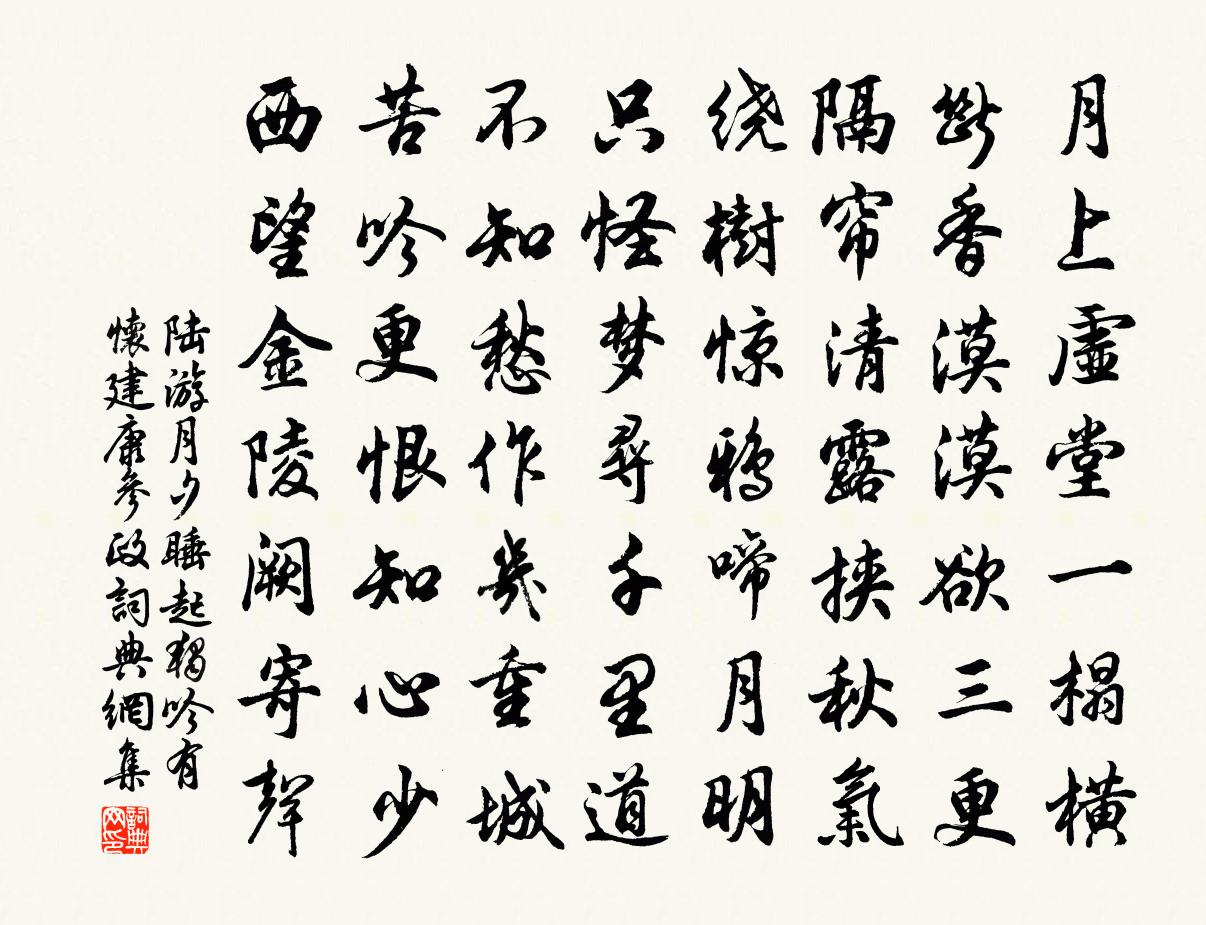 月上虛堂一榻橫
斷香漠漠欲三更
隔帘清露挾秋氣
绕樹惊鸦啼月明
只怪梦尋千里道
不知愁作幾重城
苦吟更恨知心少
西望金陵阙寄聲
陆游月夕睡起獨吟有
懷建康參政詞典網集
詞典网印